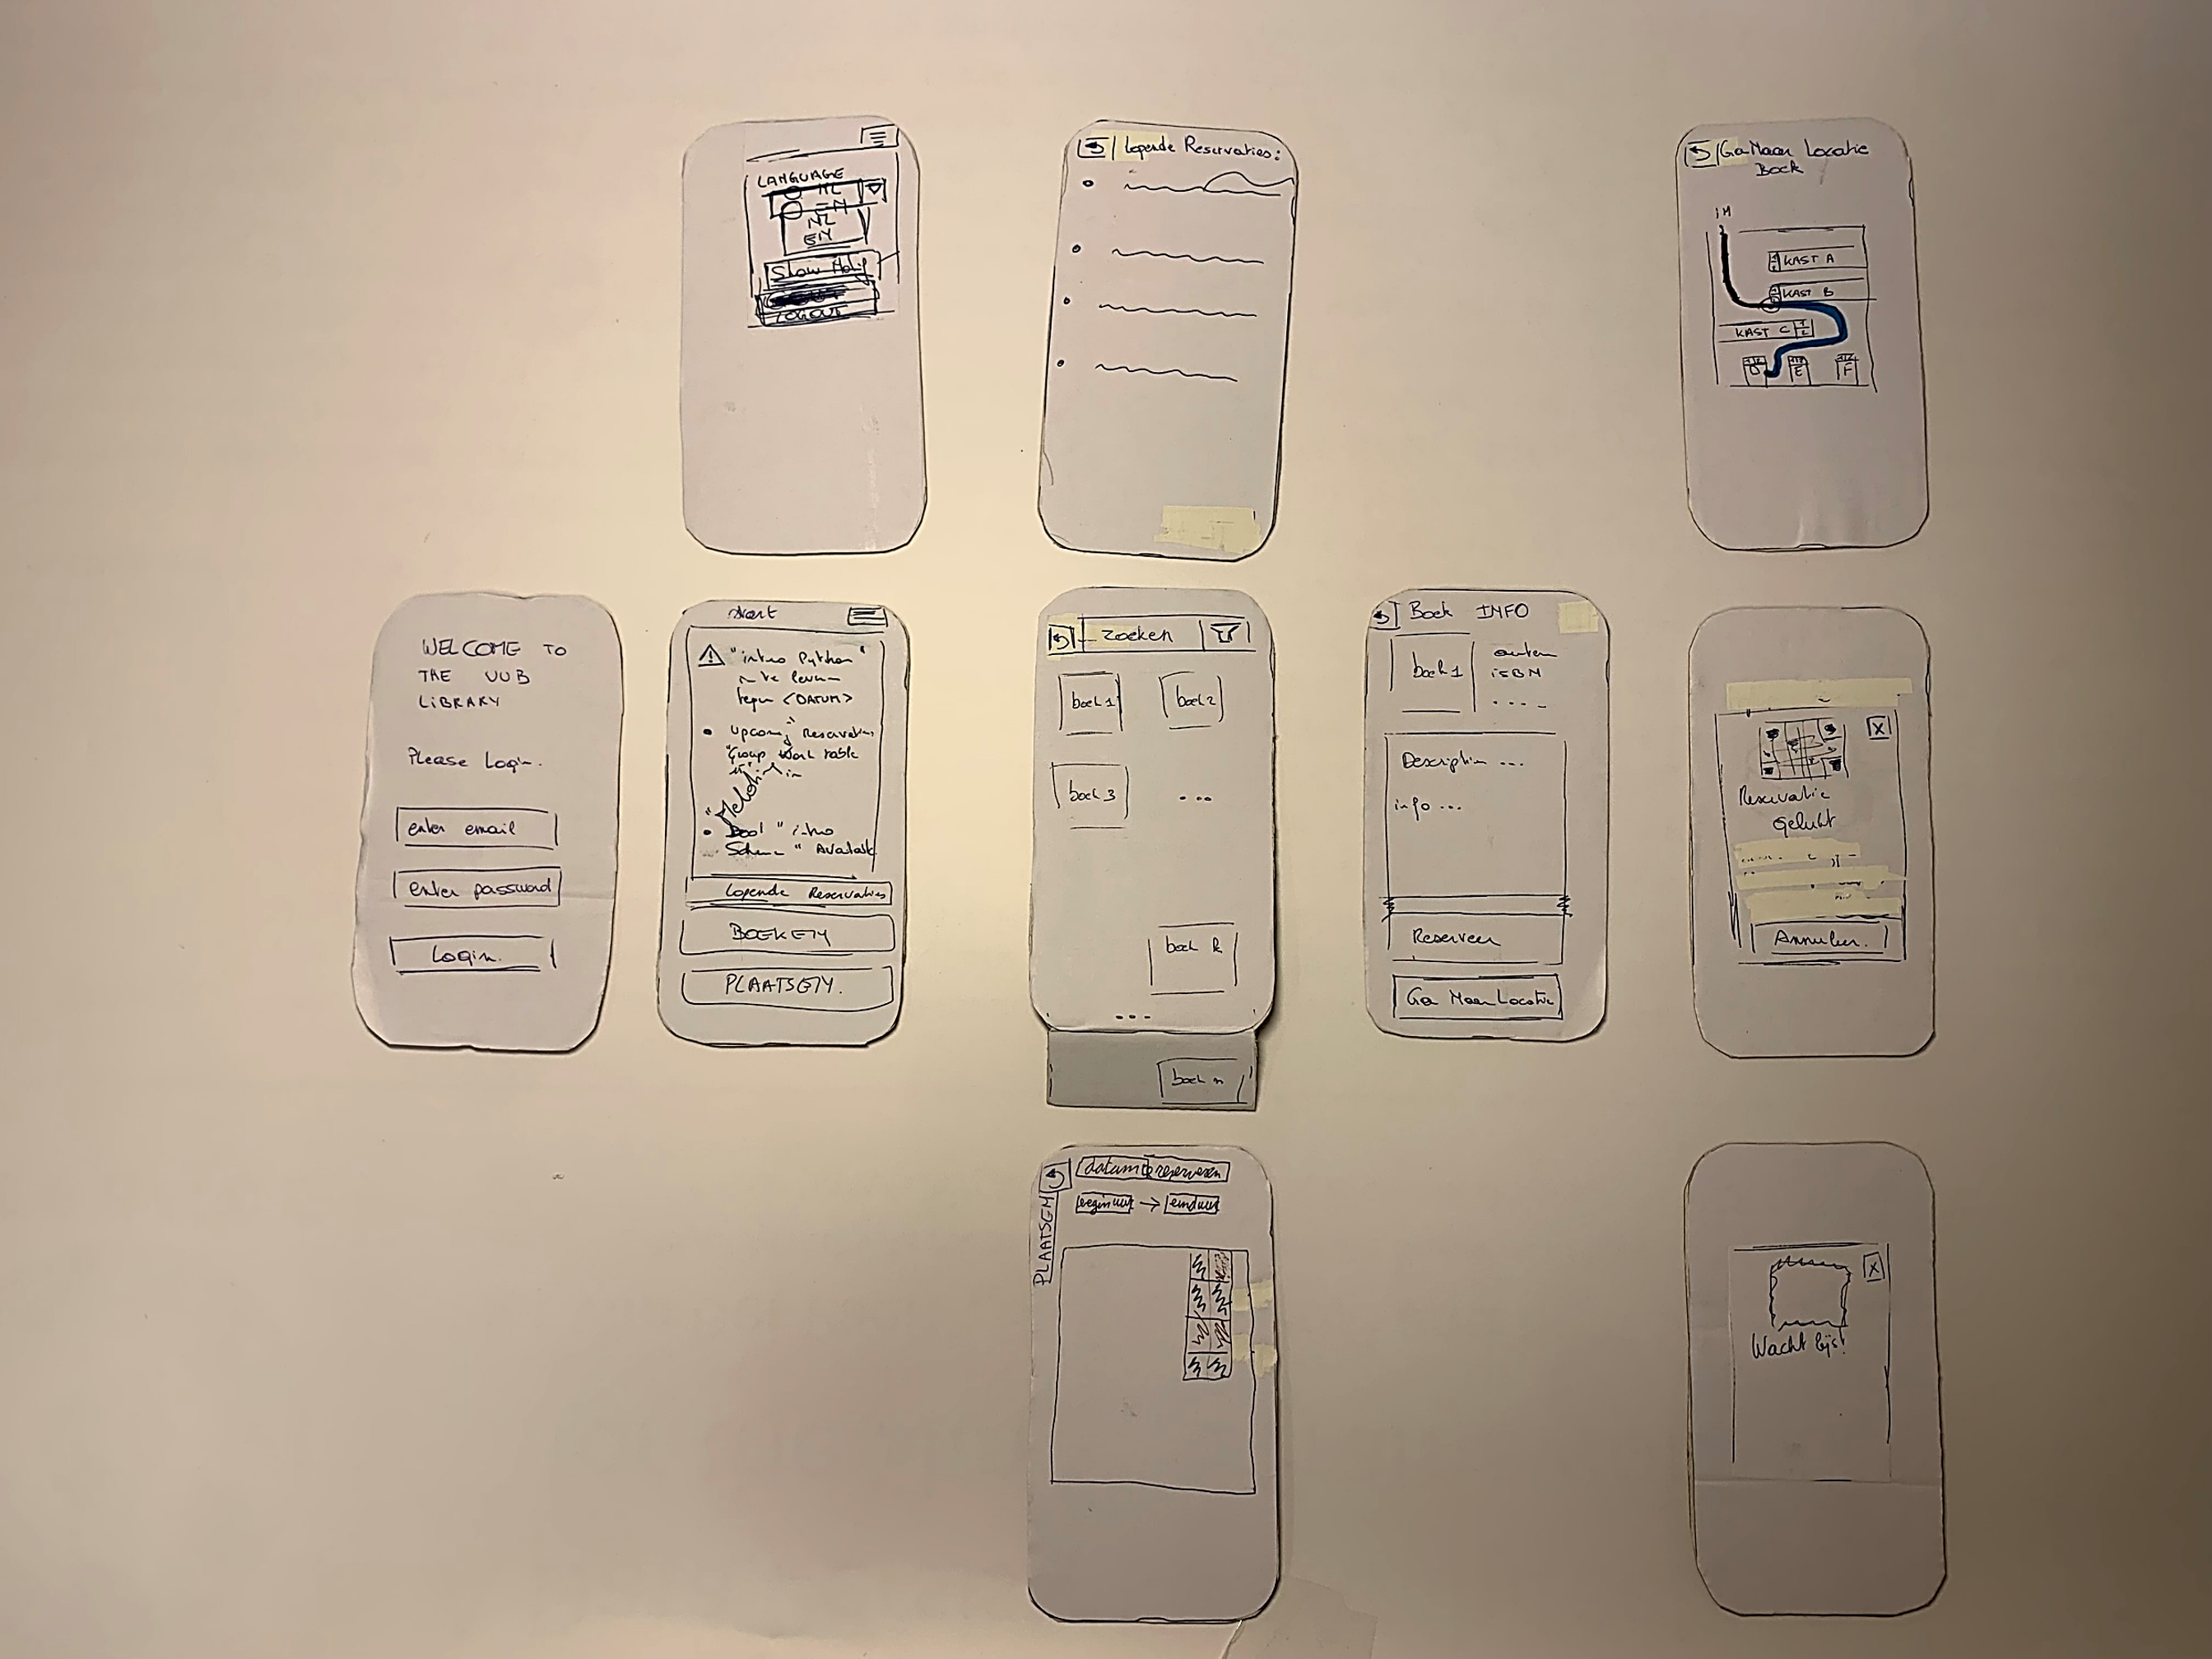 LANGUAGE
NL
EN
NL
EN
Show Notif
LOGOUT
Lopende Reservaties:
Ga Naar Locatie
Boek
IN
KAST A
KAST B
KAST C
D
E
F
WELCOME TO
THE VUB
LIBRARY
Please Login.
enter email
enter password
Login.
start
"intro Python"
in te leveren
tegen <DATUM>
Upcoming Reservation
"Group Work table
"intro
" Available
Lopende Reservaties
BOEKEN
PLAATSEN.
Zoeken
boek 1
boek 2
boek 3
...
boek k
...
boek n
Boek INFO
boek 1
auteur
ISBN
....
Description ...
info ...
Reserveer
Ga Naar Locatie
X
Reservatie
gelukt
Annuleer.
PLAATSEN
datum reserveren
beginuur → einduur
X
Wacht lijst